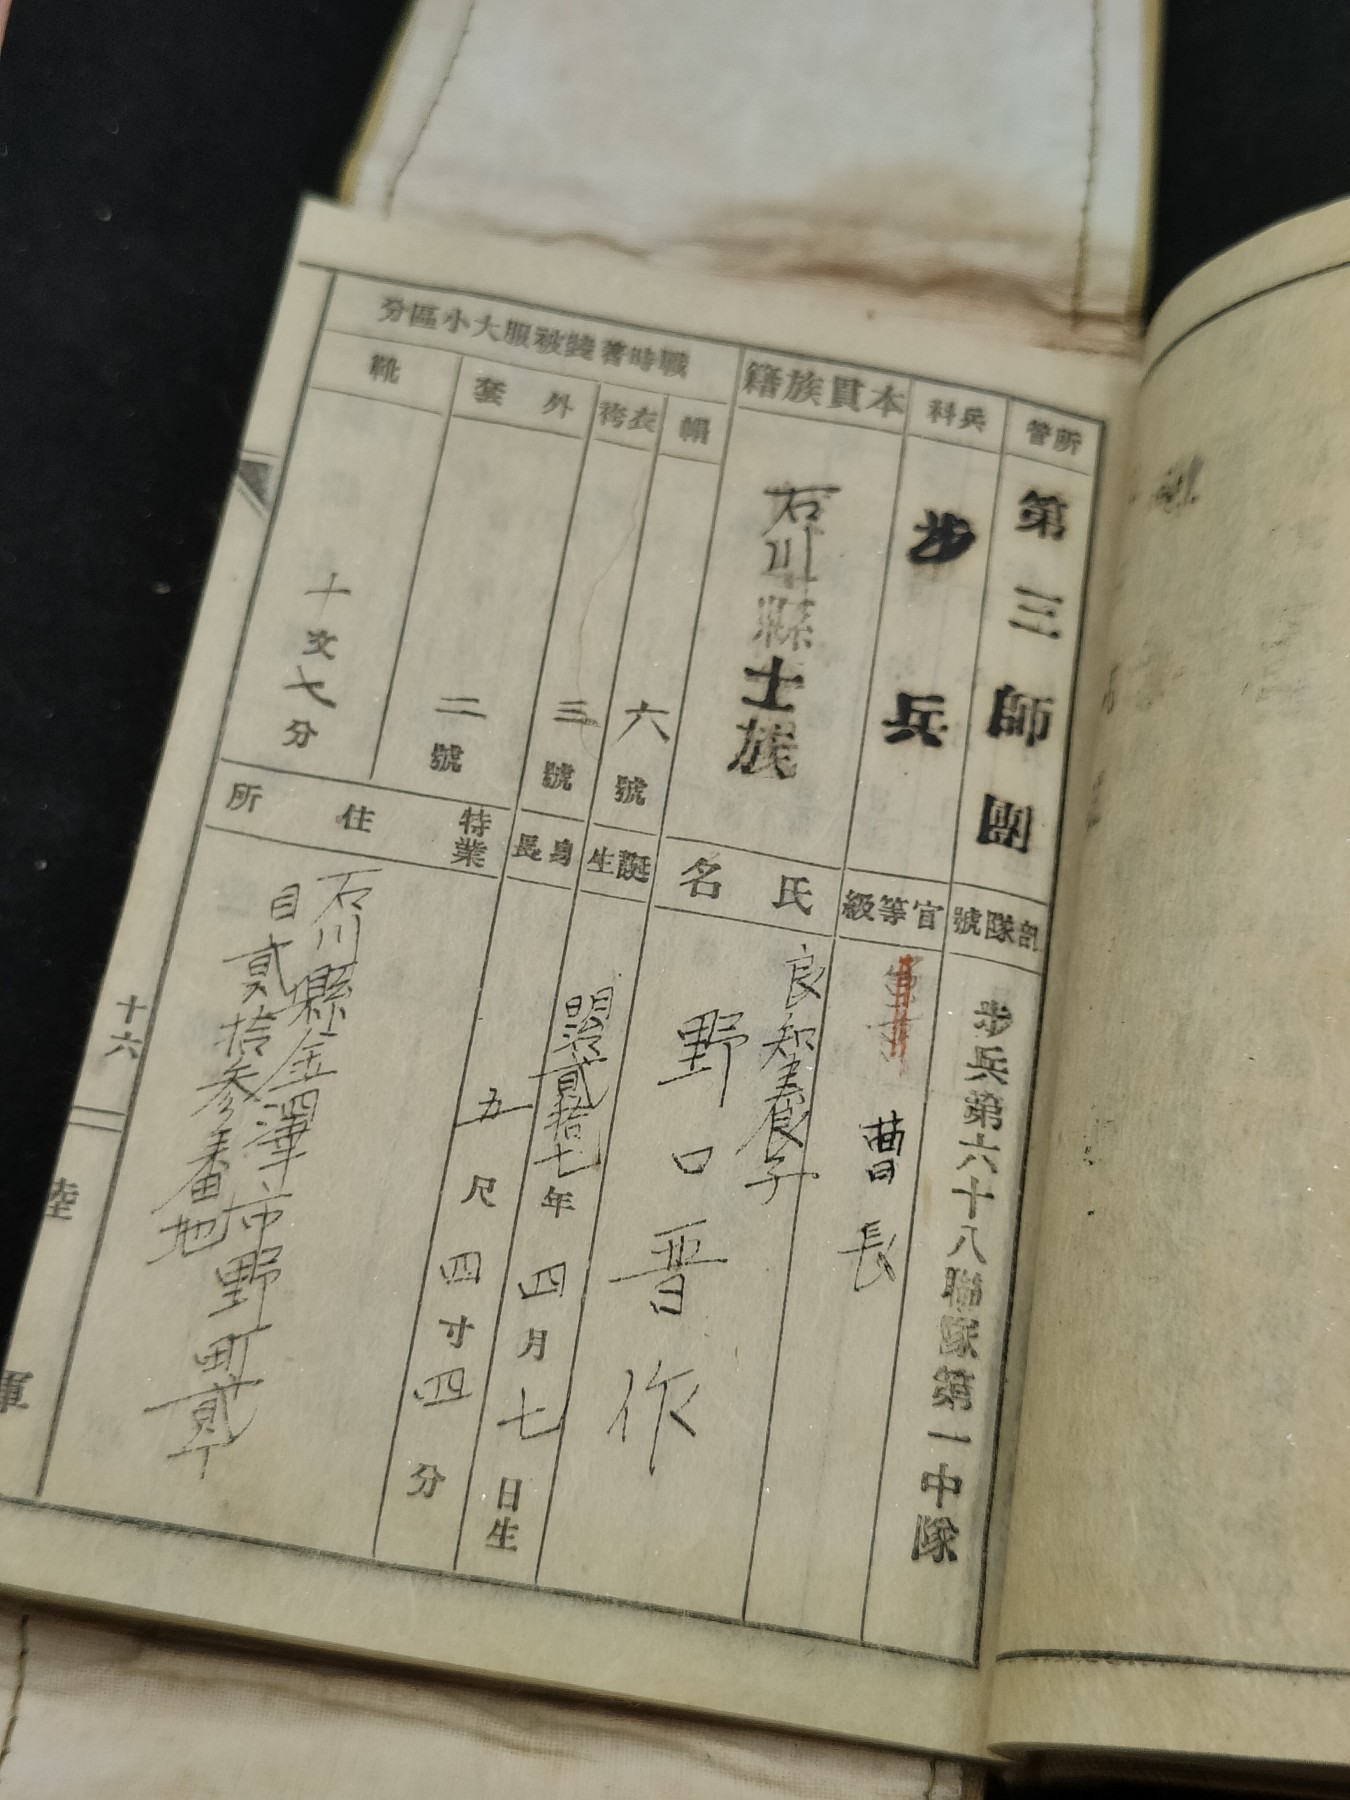 所管
第三師團
部隊號
步兵第六十八聯隊第一中隊
兵科
步兵
官等級
曹長
本貫族籍
石川縣士族
氏名
良知養子
野口晋作
戰時著裝被服大小區分
帽
六號
衣袴
三號
外套
二號
靴
十文七分
誕生
明治貳拾七年四月七日生
身長
五尺四寸四分
特業
住所
石川縣金澤市野町貳丁
目貳拾參番地
十六
陸軍